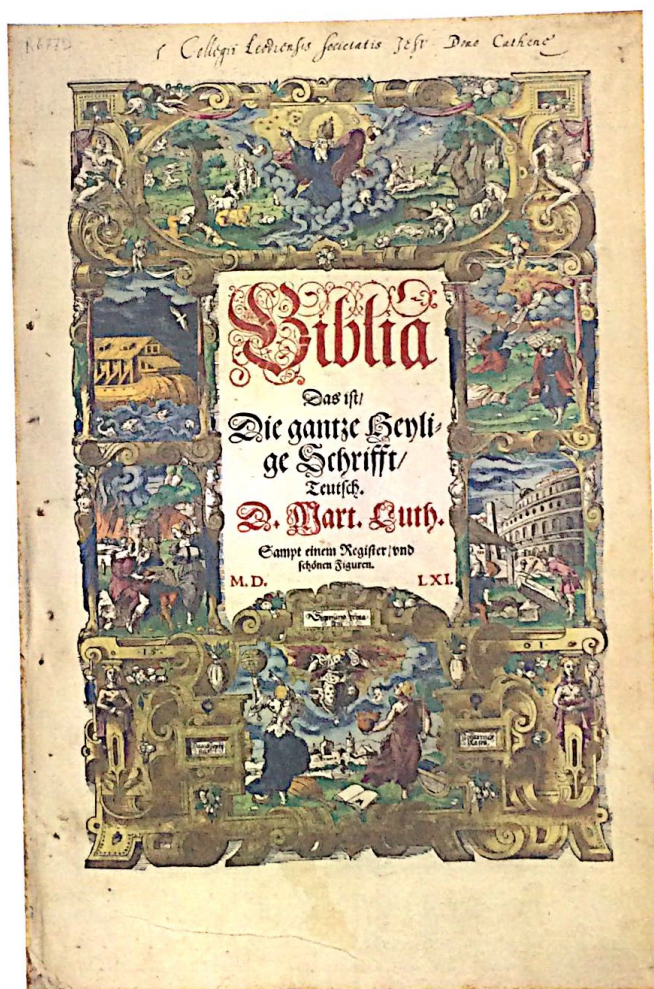 Collegii Leodiensis Societatis Jesu Dono
Biblia
Das ist/
Die gantze Heyli-
ge Schrifft/
Teutsch.
D. Mart. Luth.
Sampt einem Register/vnd
schönen Figuren.
M. D. LXI.
15 61